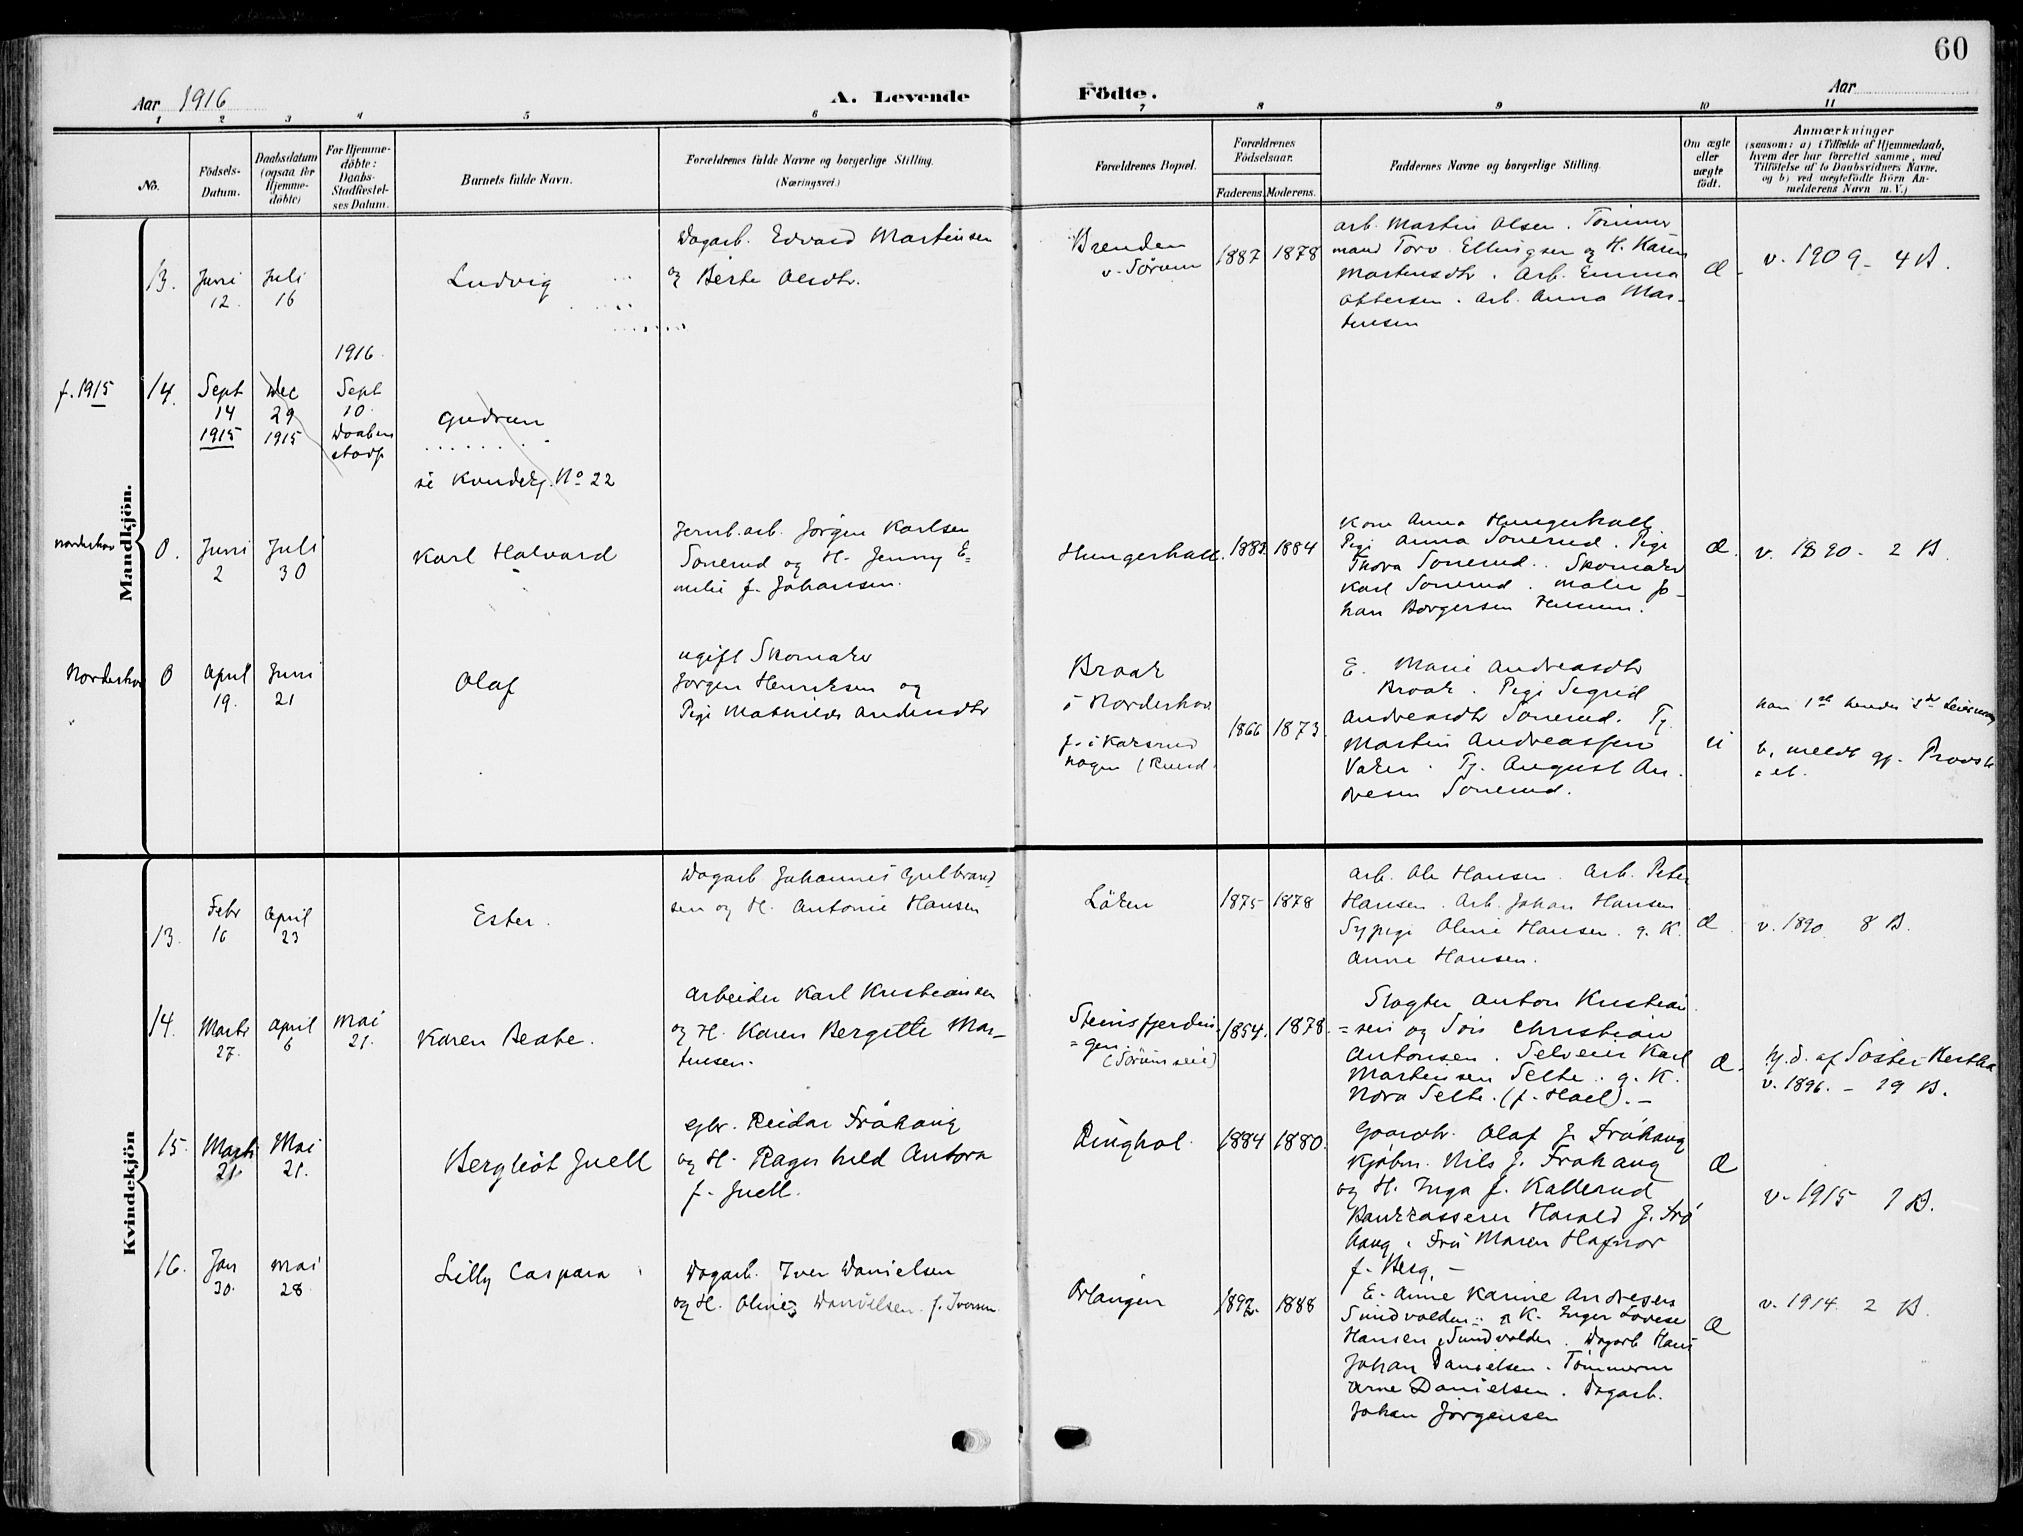 60
Aar 1916
A. Levende Födte.
Aar
1 2 3 4 5 6 7 8 9 10 11
No.
Födsels-
Datum.
Daabsdatum
(ogsaa for
Hjemme-
döbte)
For Hjemme-
döbte:
Daabs-
Stadfæstel-
ses Datum.
Barnets fulde Navn.
Forældrenes fulde Navne og borgerlige Stilling.
(Næringsvei.)
Forældrenes Bopæl.
Forældrenes
Födselsaar.
Faderens. Moderens.
Faddernes Navne og borgerlige Stilling.
Om ægte
eller
uægte
födt.
Anmærkninger
(saasom: a) i Tilfælde af Hjemmedaab,
hvem der har forrettet samme, med
Tilföielse af to Daabsvidners Navne,
og b) ved uægtefödte Börn An-
melderens Navn m. V.)
Mandkjön.
13.
Juni
12
Juli
16
Ludvig
Dagarb. Edvard Martinsen
og Berte Olsdtr.
Brenden
v. Sørum
1887 1878
arb. Martin Olsen. Tømmer
mand Torv. Ellingsen og H. Karen
Martinsdtr. Arb. Emma
Ottersen. Arb. Anna Mar-
tinsen
Æ
v. 1909 - 4 B.
f. 1915
14.
Sept
14
1915
Dec
29
1915
1916
Sept
10
Daaben
stadf.
Gudrun
se Kvindekj. No 22
Norderhov
0.
Juni
2
Juli
30
Karl Halvard
Jernb.arb. Jørgen Karlsen
Sonerud og H. Jenny E=
milie f. Johansen.
Hungerholt.
1883 1884
Kone Anna Hungerholt.
Pige Anna Sonerud. Pige
Thora Sonerud. Skomaker
Karl Sonerud. Maler Jo-
han Borgersen
Æ.
v. 1890 - 2 B.
Norderhov
0
April
19.
Juni
21
Olaf
ugift Skomaker
Jørgen Henriksen og
Pige Mathilde Andersdtr
Braak
i Norderhov
1866 1873
E. Marie Andreasdtr
Braak. Pige Sigrid
Andreasdtr Sonerud. Tj.
Martin Andreassen
Vaker. Tj. August An-
dresen Sonerud.
u
han 1ste hendes
b. meldt gj.
Kvindekjön
13.
Febr
16
April
23
Ester.
Dagarb. Johannes Gulbrand
sen og H. Antonie Hansen
Löken
1875 1878
arb. Ole Hansen. Arb. Peter
Hansen. Arb. Johan Hansen
Sypige Oline Hansen. g. K.
Anne Hansen.
Æ
v. 1890 8 B.
14.
Marts
27.
April
6
Mai
21.
Karen Beate.
Arbeider Karl Kristiansen
og H. Karen Bergitte Mar-
tinsen.
Steinsfjerdin-
=gen.
(Sørumseie)
1854. 1878.
Slagter Anton Kristian
=sen og Søn Christian
Antonsen. Selveier Karl
Martinsen Selte. g. K.
Nora Selte. (f. Hael). -
Æ.
hj.d. af Søster Bertha
v. 1896. - 19 B.
15.
Marts
21.
Mai
21.
Bergliot Juell
gbr. Reidar Fröhaug
og H. Ragnhild Antora
f. Juell.
Ringhol.
1884 1880.
Gaardbr. Olaf J. Fröhaug
Kjøbm. Nils J. Fröhaug
og H. Inga f. Kallerud
Bankkasserer Harald J. Frö
haug. Fru Maren Hafnor
f. Berg. -
Æ
v. 1915 1 B.
16.
Jan
30.
Mai
28.
Lilly Caspara
Dagarb. Iver Danielsen
og H. Oline Danielsen. f. Iversen
Ørlangen
1892. 1888
E. Anne Karine Andresen
Sundvolden. g K. Inger Lovise
Hansen, Sundvolden. Dagarb Hans
Johan Danielsen. Tømmerm
Arne Danielsen. Dagarb.
Johan Jørgensen
Æ
v. 1914. 2 B.